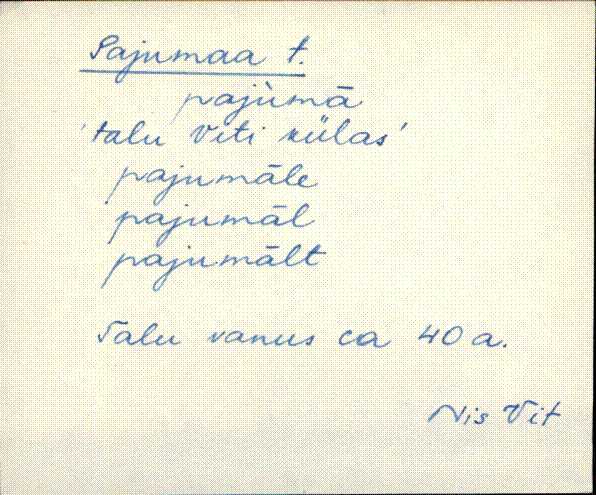 Pajumaa t.
pajùmā
'talu Viti külas'
pajumāle
pajumāl
pajumālt
Talu vanus ca 40 a.
Nis Vit